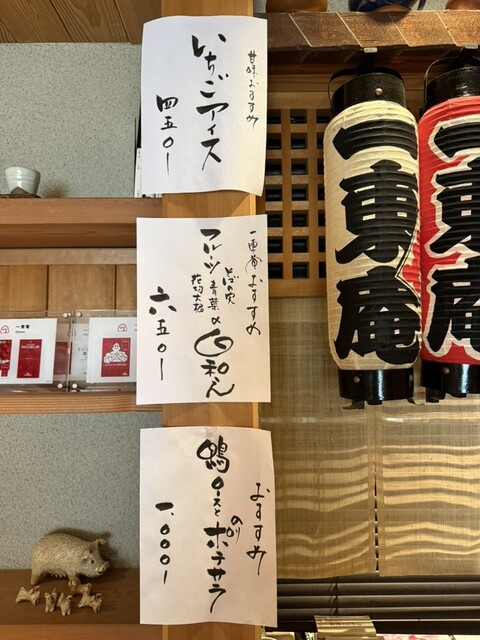 甘味おすすめ
いちごアイス
四五〇ー
一東菴おすすめ
フルーツ
青菜の
花切大根
白和え
六五〇ー
おすすめ
鴨ロースと
のり
ポテサラ
一、〇〇〇ー
一東菴
一東菴
一東菴